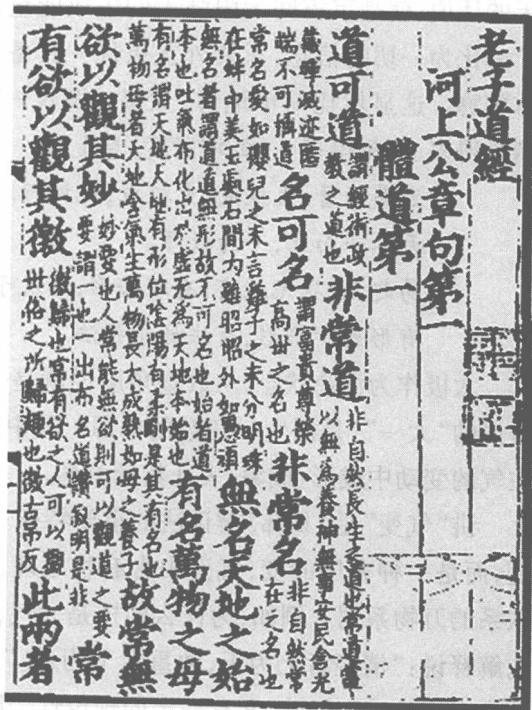 老子道經
河上公章句第一
體道第一
道可道謂經術政教之道也非常道非自然長生之道也常道當以無為養神無事安民含光
藏暉滅迹匿端不可稱道名可名謂富貴尊榮高世之名也非常名非自然常在之名也
常名愛如嬰兒之未言雞子之未分明珠在蚌中美玉處石間內雖昭昭外如愚頑無名天地之始
無名者謂道道無形故不可名也始者道本也吐氣布化出於虛无為天地本始也有名萬物之母
有名謂天地天地有形位陰陽有柔剛是其有名也萬物母者天地含氣生萬物長大成熟如母之養子故常無
欲以觀其妙妙要也人常能無欲則可以觀道之要要謂一也一出布名道讚叙明是非常
有欲以觀其徼徼歸也常有欲之人可以觀世俗之所歸趣也徼古吊反此兩者